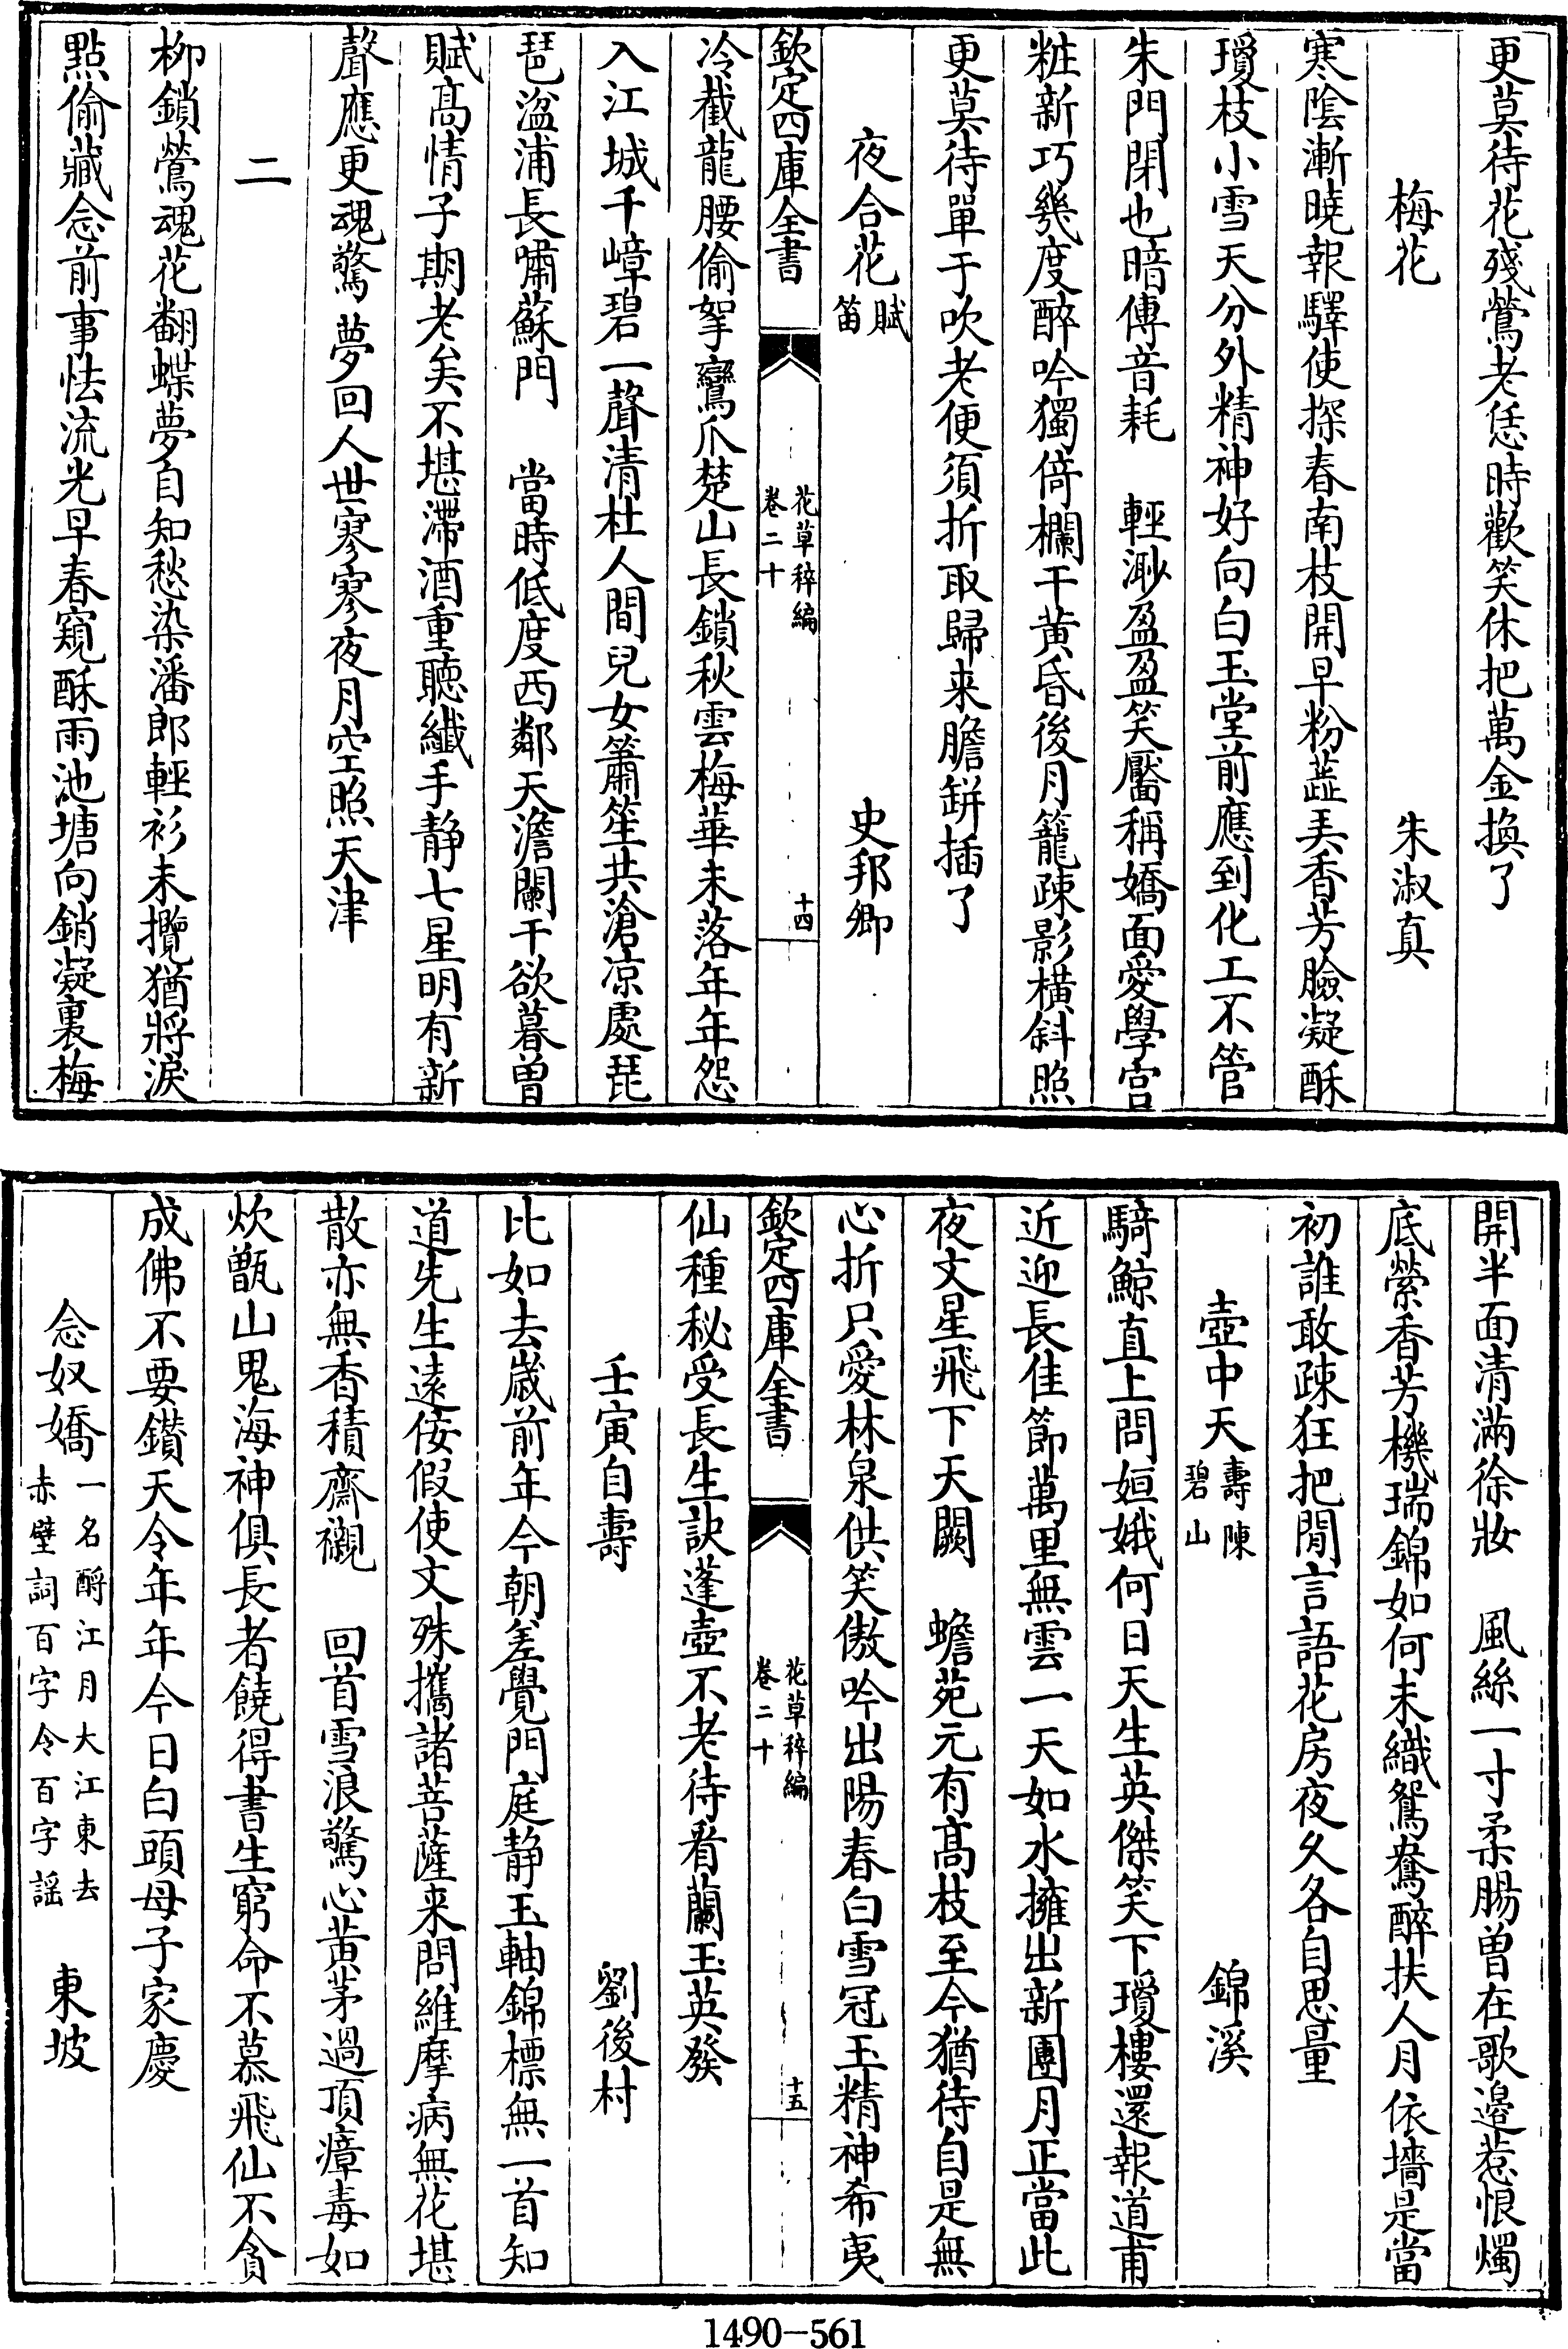 更莫待花殘鶯老恁時歡笑休把萬金換了
梅花　朱淑真
寒陰漸曉報驛使探春南枝開早粉蘂弄香芳臉凝酥
瓊枝小雪天分外精神好向白玉堂前應到化工不管
朱門閉也暗傳音耗　輕渺盈盈笑靨稱嬌面愛學宫
粧新巧幾度醉吟獨倚欄干黄昏後月籠疎影橫斜照
更莫待單于吹老便須折取歸来膽缾插了
夜合花賦笛　史邦卿
欽定四庫全書　花草稡編卷二十　十四
冷截龍腰偷拏鸞爪楚山長鎖秋雲梅華未落年年怨
入江城千嶂碧一聲清杜人間兒女簫笙共滄凉處琵
琶湓浦長嘯蘇門　當時低度西鄰天澹闌干欲暮曽
賦髙情子期老矣不堪滯酒重聽纎手静七星明有新
聲應更魂驚夢回人世寥寥夜月空照天津
二
柳鎖鶯魂花翻蝶夢自知愁染潘郎輕衫未攬猶將淚
點偷藏念前事怯流光早春窺酥雨池塘向銷凝裏梅
開半面清滿徐妝　風絲一寸柔腸曽在歌邉惹恨燭
底縈香芳機瑞錦如何未織鴛鴦醉扶人月依墻是當
初誰敢疎狂把閒言語花房夜久各自思量
壺中天壽陳碧山　錦溪
騎鯨直上問姮娥何日天生英傑笑下瓊樓還報道甫
近迎長佳節萬里無雲一天如水擁出新團月正當此
夜文星飛下天闕　蟾苑元有髙枝至今猶待自是無
心折只愛林泉供笑傲吟出陽春白雪冠玉精神希夷
欽定四庫全書　花草稡編卷二十　十五
仙種秘受長生訣蓬壺不老待看蘭玉英發
壬寅自壽　劉後村
比如去嵗前年今朝差覺門庭静玉軸錦標無一首知
道先生遠佞假使文殊攜諸菩薩来問維摩病無花堪
散亦無香積齋襯　回首雪浪驚心黄茅過頂瘴毒如
炊甑山鬼海神俱長者饒得書生窮命不慕飛仙不貪
成佛不要鑽天令年年今日白頭母子家慶
念奴嬌一名酹江月大江東去赤壁詞百字令百字謡　東坡
1490-561